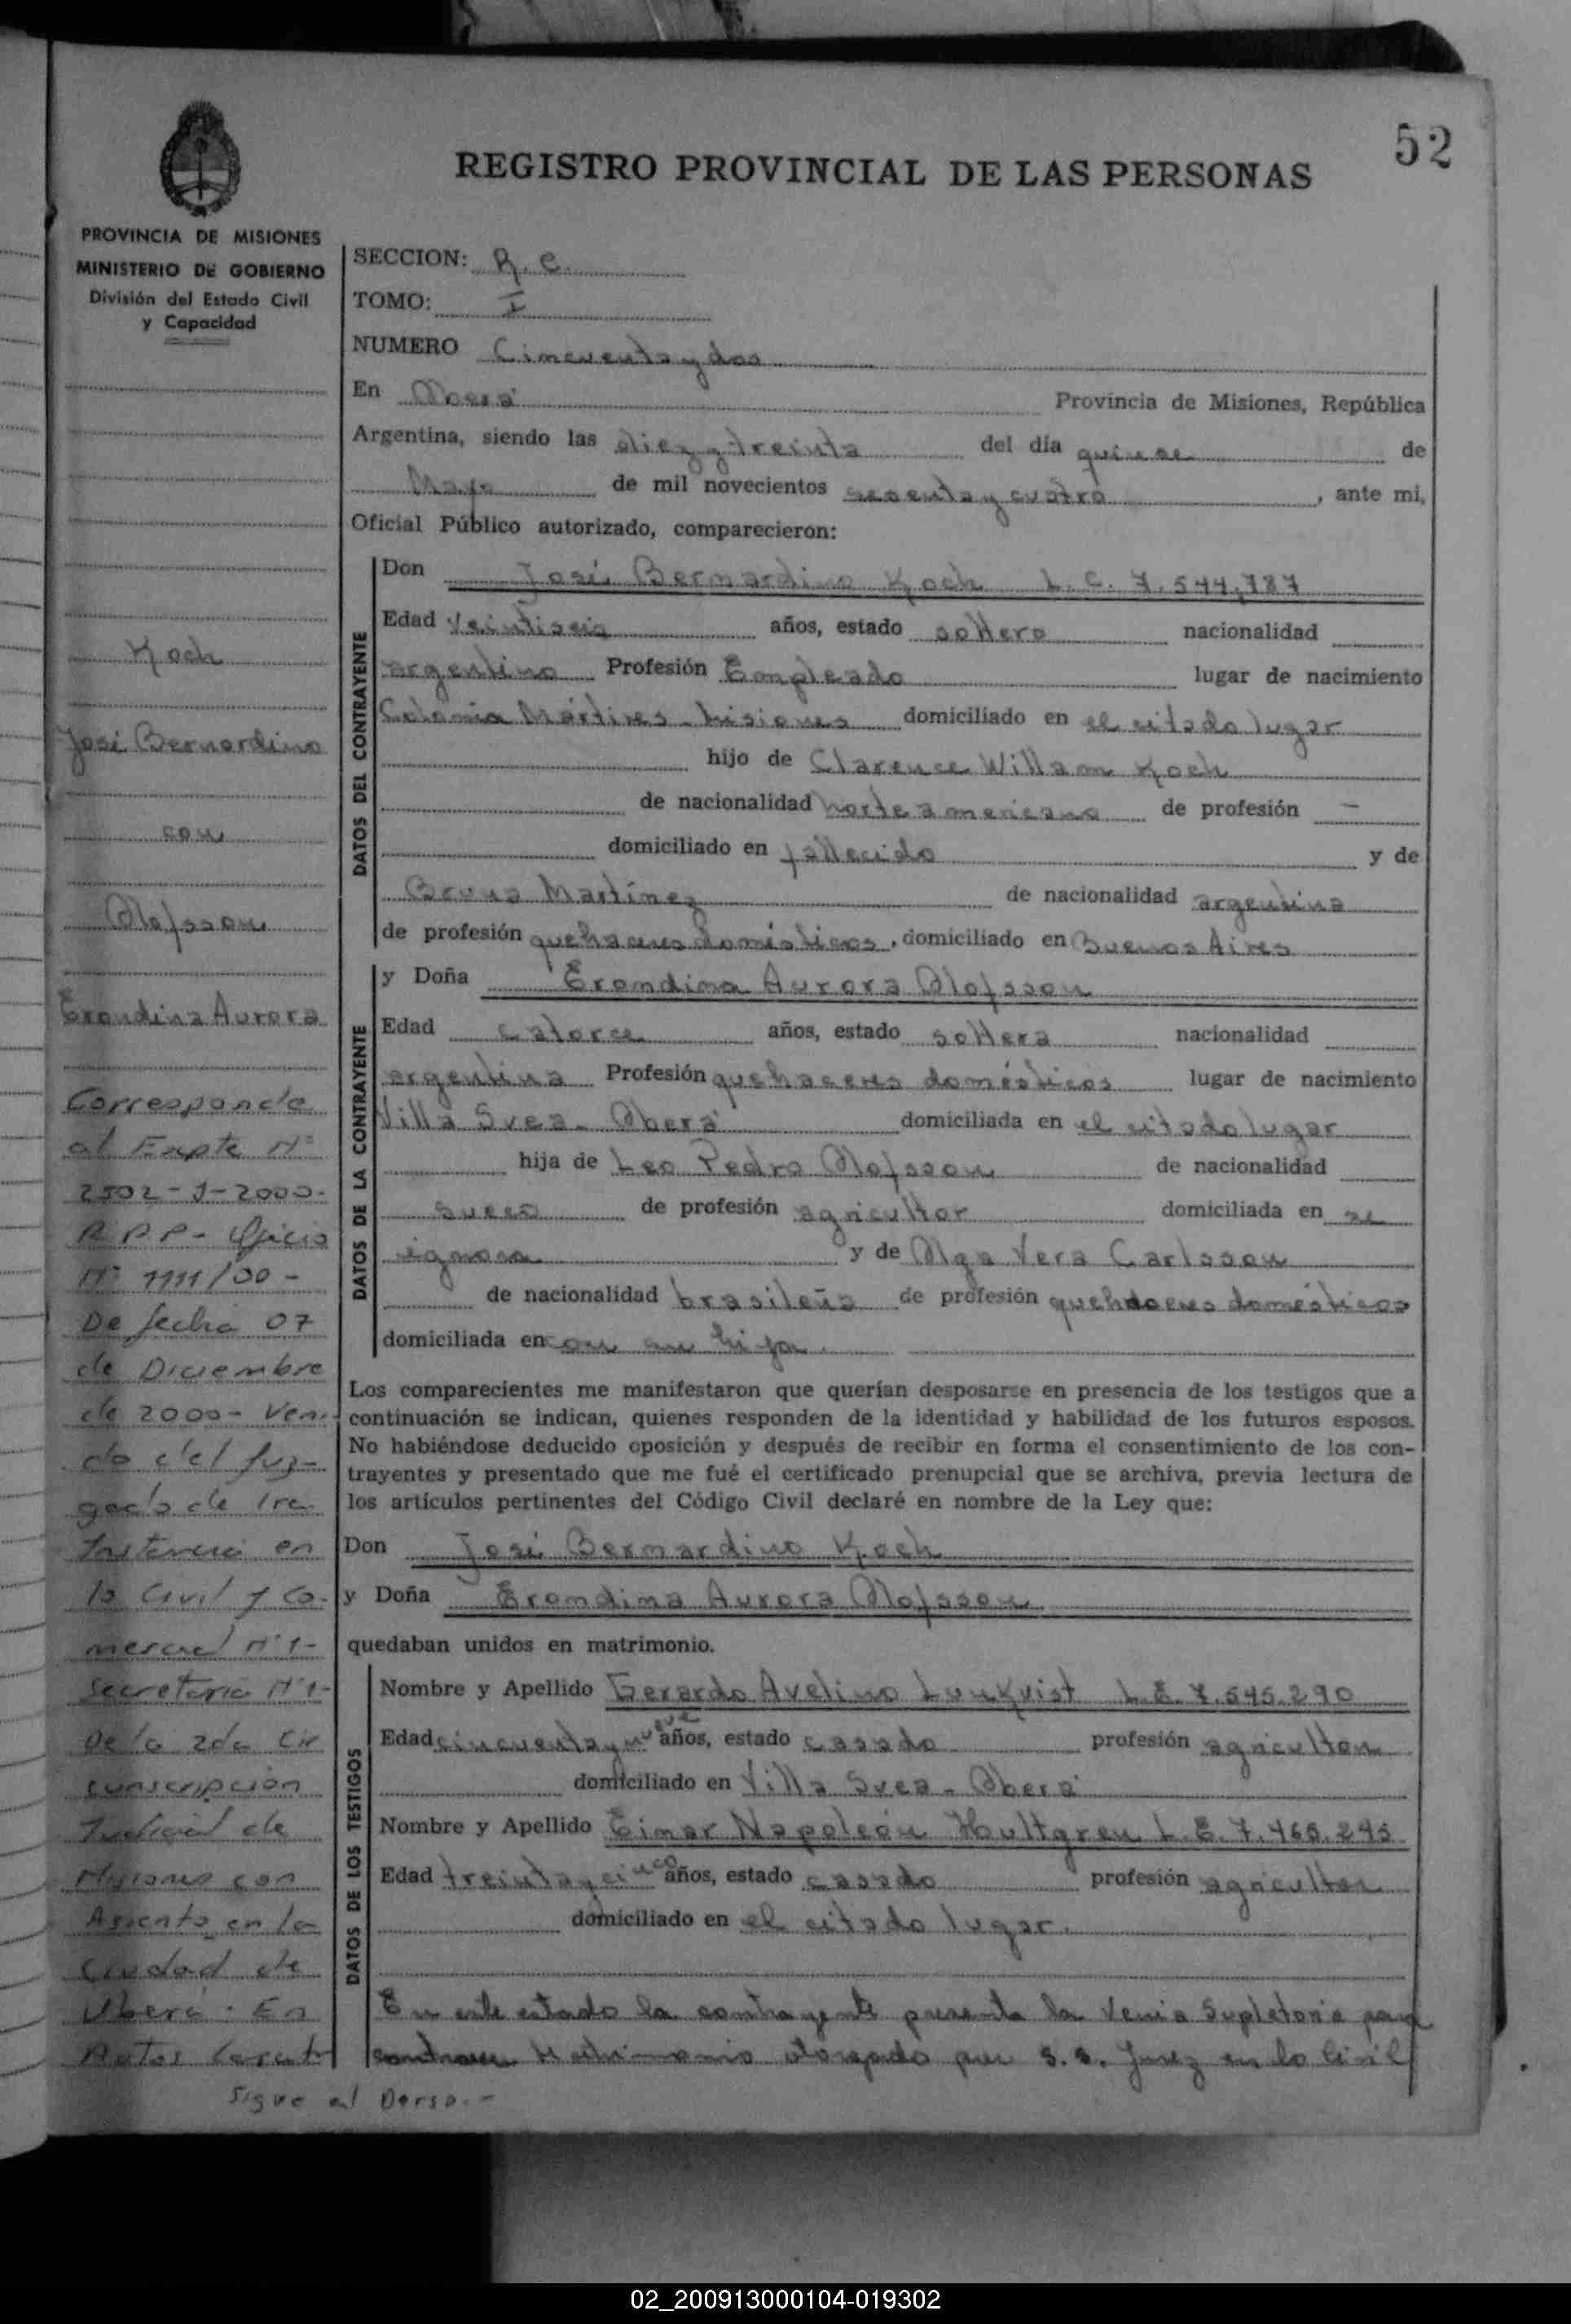 52
REGISTRO PROVINCIAL DE LAS PERSONAS
PROVINCIA DE MISIONES
MINISTERIO DE GOBIERNO
División del Estado Civil
y Capacidad
Koch
José Bernardino
con
Olofsson
Erondina Aurora
Corresponde
al Expte Nº
2502-J-2000-
R.P.P- Oficio
Nº 1111/00-
De fecha 07
de Diciembre
de 2000- Veni-
do del Juz-
gado de 1ra.
Instancia en
lo Civil y Co-
mercial Nº1-
Secretaria Nº1-
De la 2da Cir
cunscripción
Judicial de
Misiones con
Asiento en la
Ciudad de
Oberá: En
Autos Carat
Sigue al Dorso.-
SECCION: R. C.
TOMO: I
NUMERO Cincuenta y dos
En Oberá Provincia de Misiones, República
Argentina, siendo las diez y treinta del día quince de
Mayo de mil novecientos sesenta y cuatro, ante mi,
Oficial Público autorizado, comparecieron:
DATOS DEL CONTRAYENTE
Don José Bernardino Koch L. C. 7.544.787
Edad Veintiseis años, estado soltero nacionalidad
argentino Profesión Empleado lugar de nacimiento
Colonia Mártires - Misiones domiciliado en el citado lugar
hijo de Clarence Willam Koch
de nacionalidad norteamericano de profesión -
domiciliado en fallecido y de
Bruna Martínez de nacionalidad argentina
de profesión quehaceres domésticos, domiciliado en Buenos Aires
DATOS DE LA CONTRAYENTE
y Doña Erondina Aurora Olofsson
Edad catorce años, estado soltera nacionalidad
argentina Profesión quehaceres domésticos lugar de nacimiento
Villa Svea - Oberá domiciliada en el citado lugar
hija de Leo Pedro Olofsson de nacionalidad
sueco de profesión agricultor domiciliada en se
ignora y de Olga Vera Carlsson
de nacionalidad brasileña de profesión quehaceres domésticos
domiciliada en con su hija.
Los comparecientes me manifestaron que querían desposarse en presencia de los testigos que a
continuación se indican, quienes responden de la identidad y habilidad de los futuros esposos.
No habiéndose deducido oposición y después de recibir en forma el consentimiento de los con-
trayentes y presentado que me fué el certificado prenupcial que se archiva, previa lectura de
los artículos pertinentes del Código Civil declaré en nombre de la Ley que:
Don José Bernardino Koch
y Doña Erondina Aurora Olofsson
quedaban unidos en matrimonio.
DATOS DE LOS TESTIGOS
Nombre y Apellido Gerardo Avelino Lunkvist L.E. 7.545.290
Edad cincuenta y nueve años, estado casado profesión agricultor
domiciliado en Villa Svea - Oberá
Nombre y Apellido Einar Napoleón Hultgren L.E. 7.465.245
Edad treinta y cinco años, estado casado profesión agricultor
domiciliado en el citado lugar.
En este estado la contrayente presenta la Venia Supletoria para
contraer Matrimonio otorgado por S.S. Juez en lo Civil
02_200913000104-019302